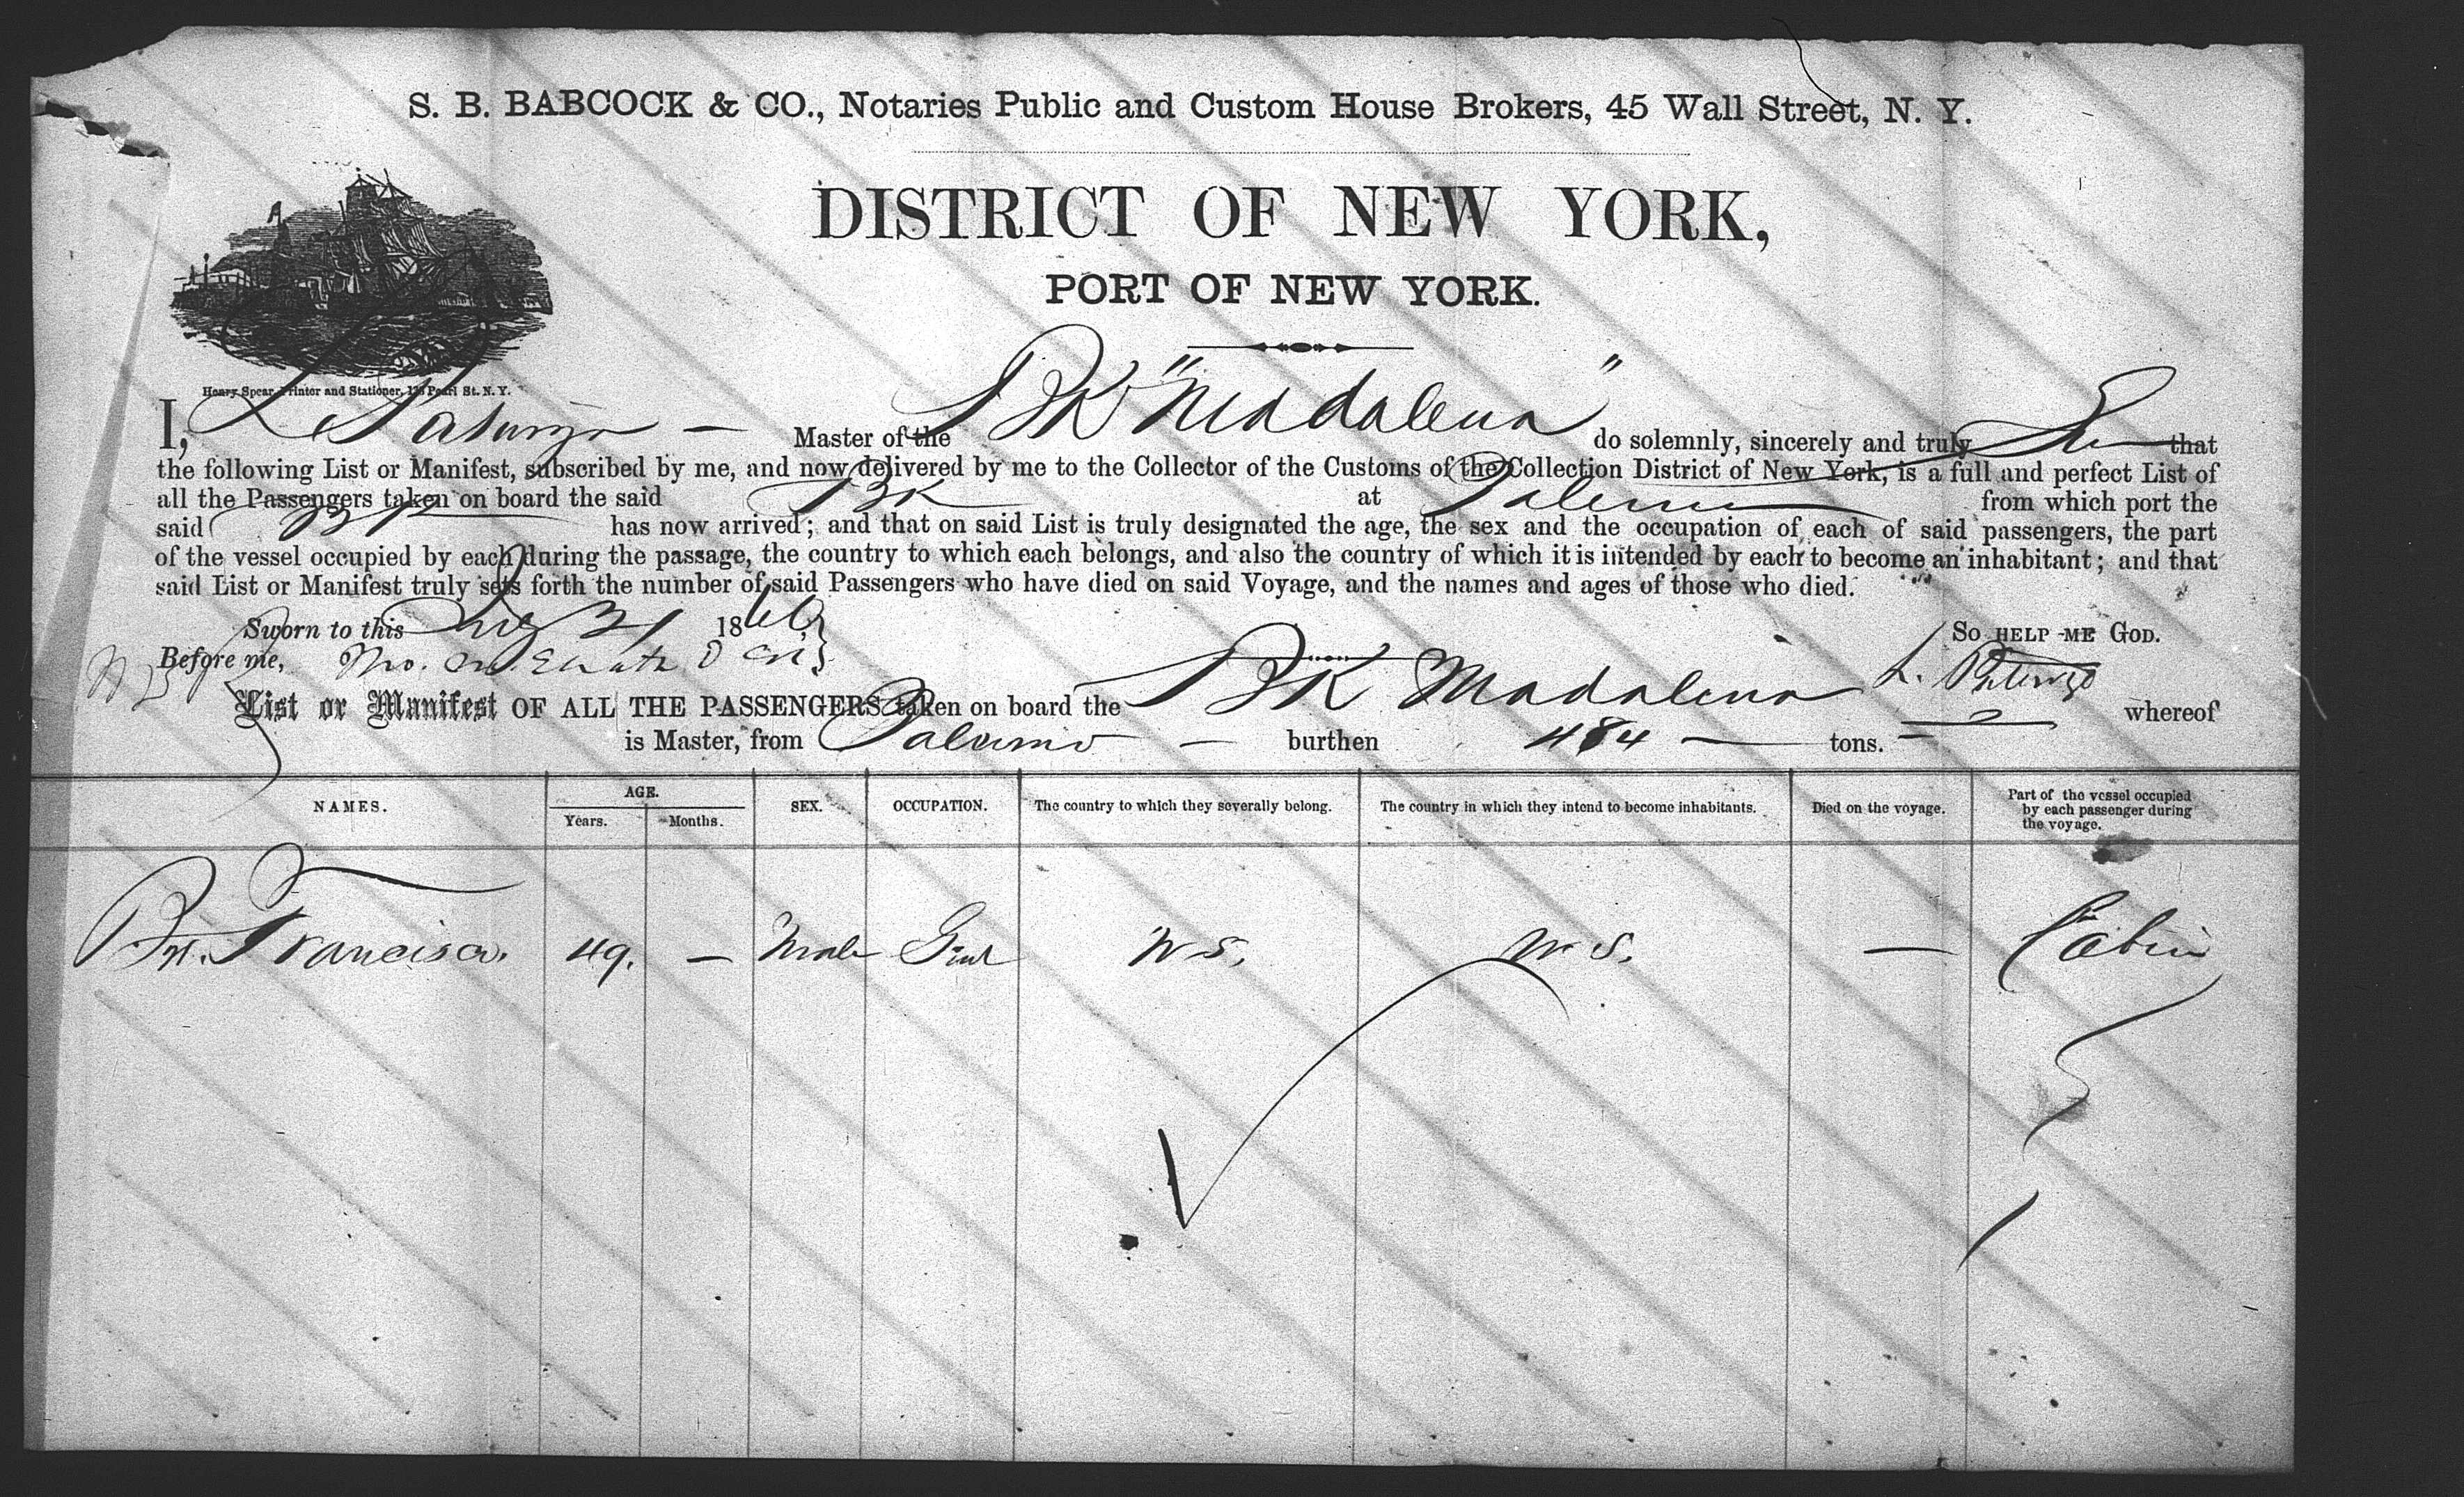 S. B. BABCOCK & CO., Notaries Public and Custom House Brokers, 45 Wall Street, N. Y.
DISTRICT OF NEW YORK,
PORT OF NEW YORK.
Henry Spear, Printer and Stationer, Pearl St. N. Y.
I, Master of the BK "Madalena" do solemnly, sincerely and truly that
the following List or Manifest, subscribed by me, and now delivered by me to the Collector of the Customs of the Collection District of New York, is a full and perfect List of
all the Passengers taken on board the said BK at Palermo from which port the
said BK has now arrived; and that on said List is truly designated the age, the sex and the occupation of each of said passengers, the part
of the vessel occupied by each during the passage, the country to which each belongs, and also the country of which it is intended by each to become an inhabitant; and that
said List or Manifest truly sets forth the number of said Passengers who have died on said Voyage, and the names and ages of those who died.
Sworn to this 21 1866 SO HELP ME GOD.
Before me,
List or Manifest OF ALL THE PASSENGERS taken on board the BK Madalena whereof
is Master, from Palermo burthen 484 tons.
NAMES. AGE. SEX. OCCUPATION. The country to which they severally belong. The country in which they intend to become inhabitants. Died on the voyage. Part of the vessel occupied by each passenger during the voyage.
Years. Months.
Francisco. 49. — Male U S. U S. — Cabin